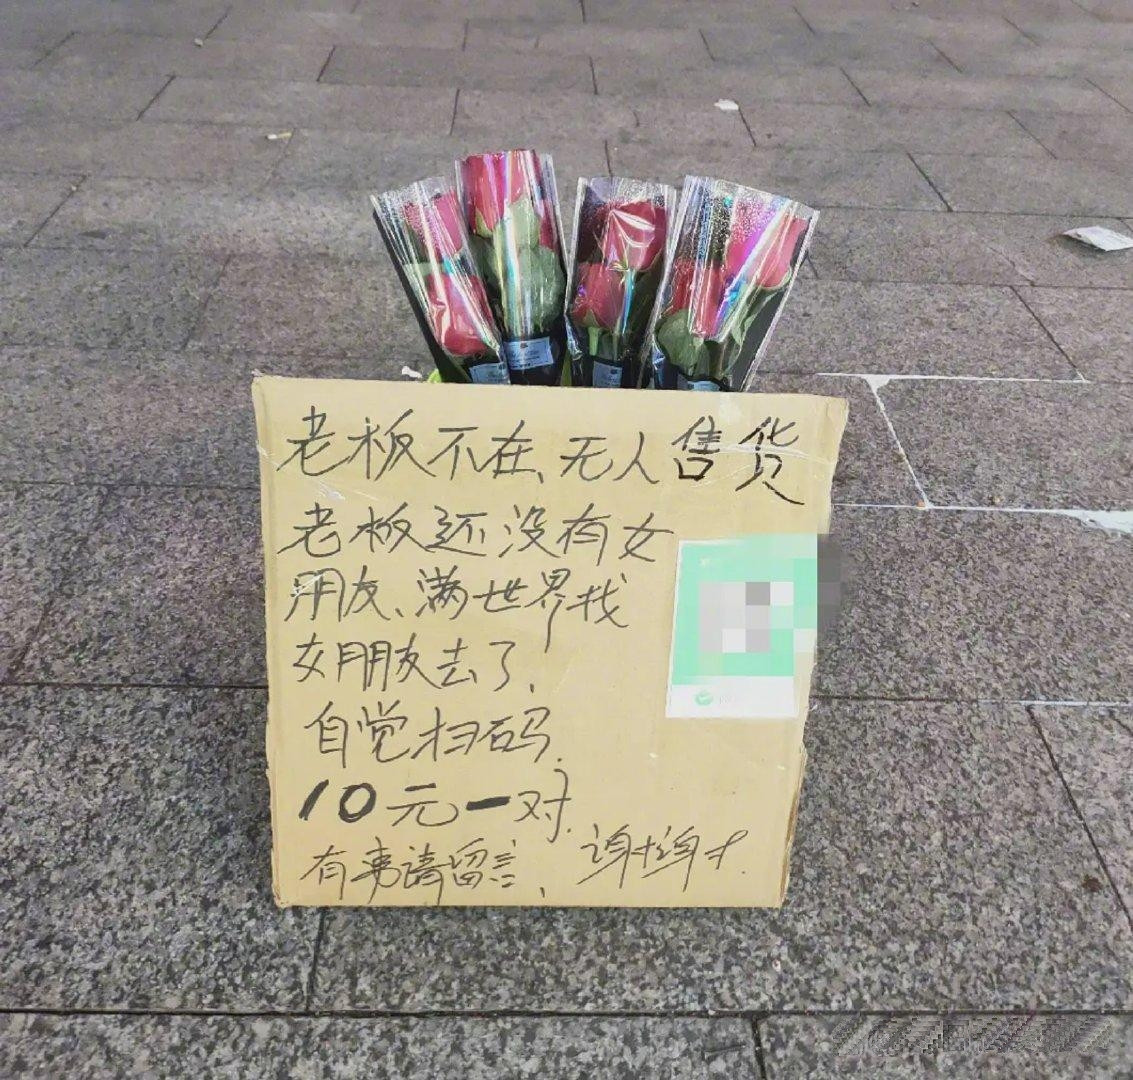 老板不在、无人售货
老板还没有女
朋友、满世界找
女朋友去了.
自觉扫码.
10元一对.
有事请留言、谢谢.